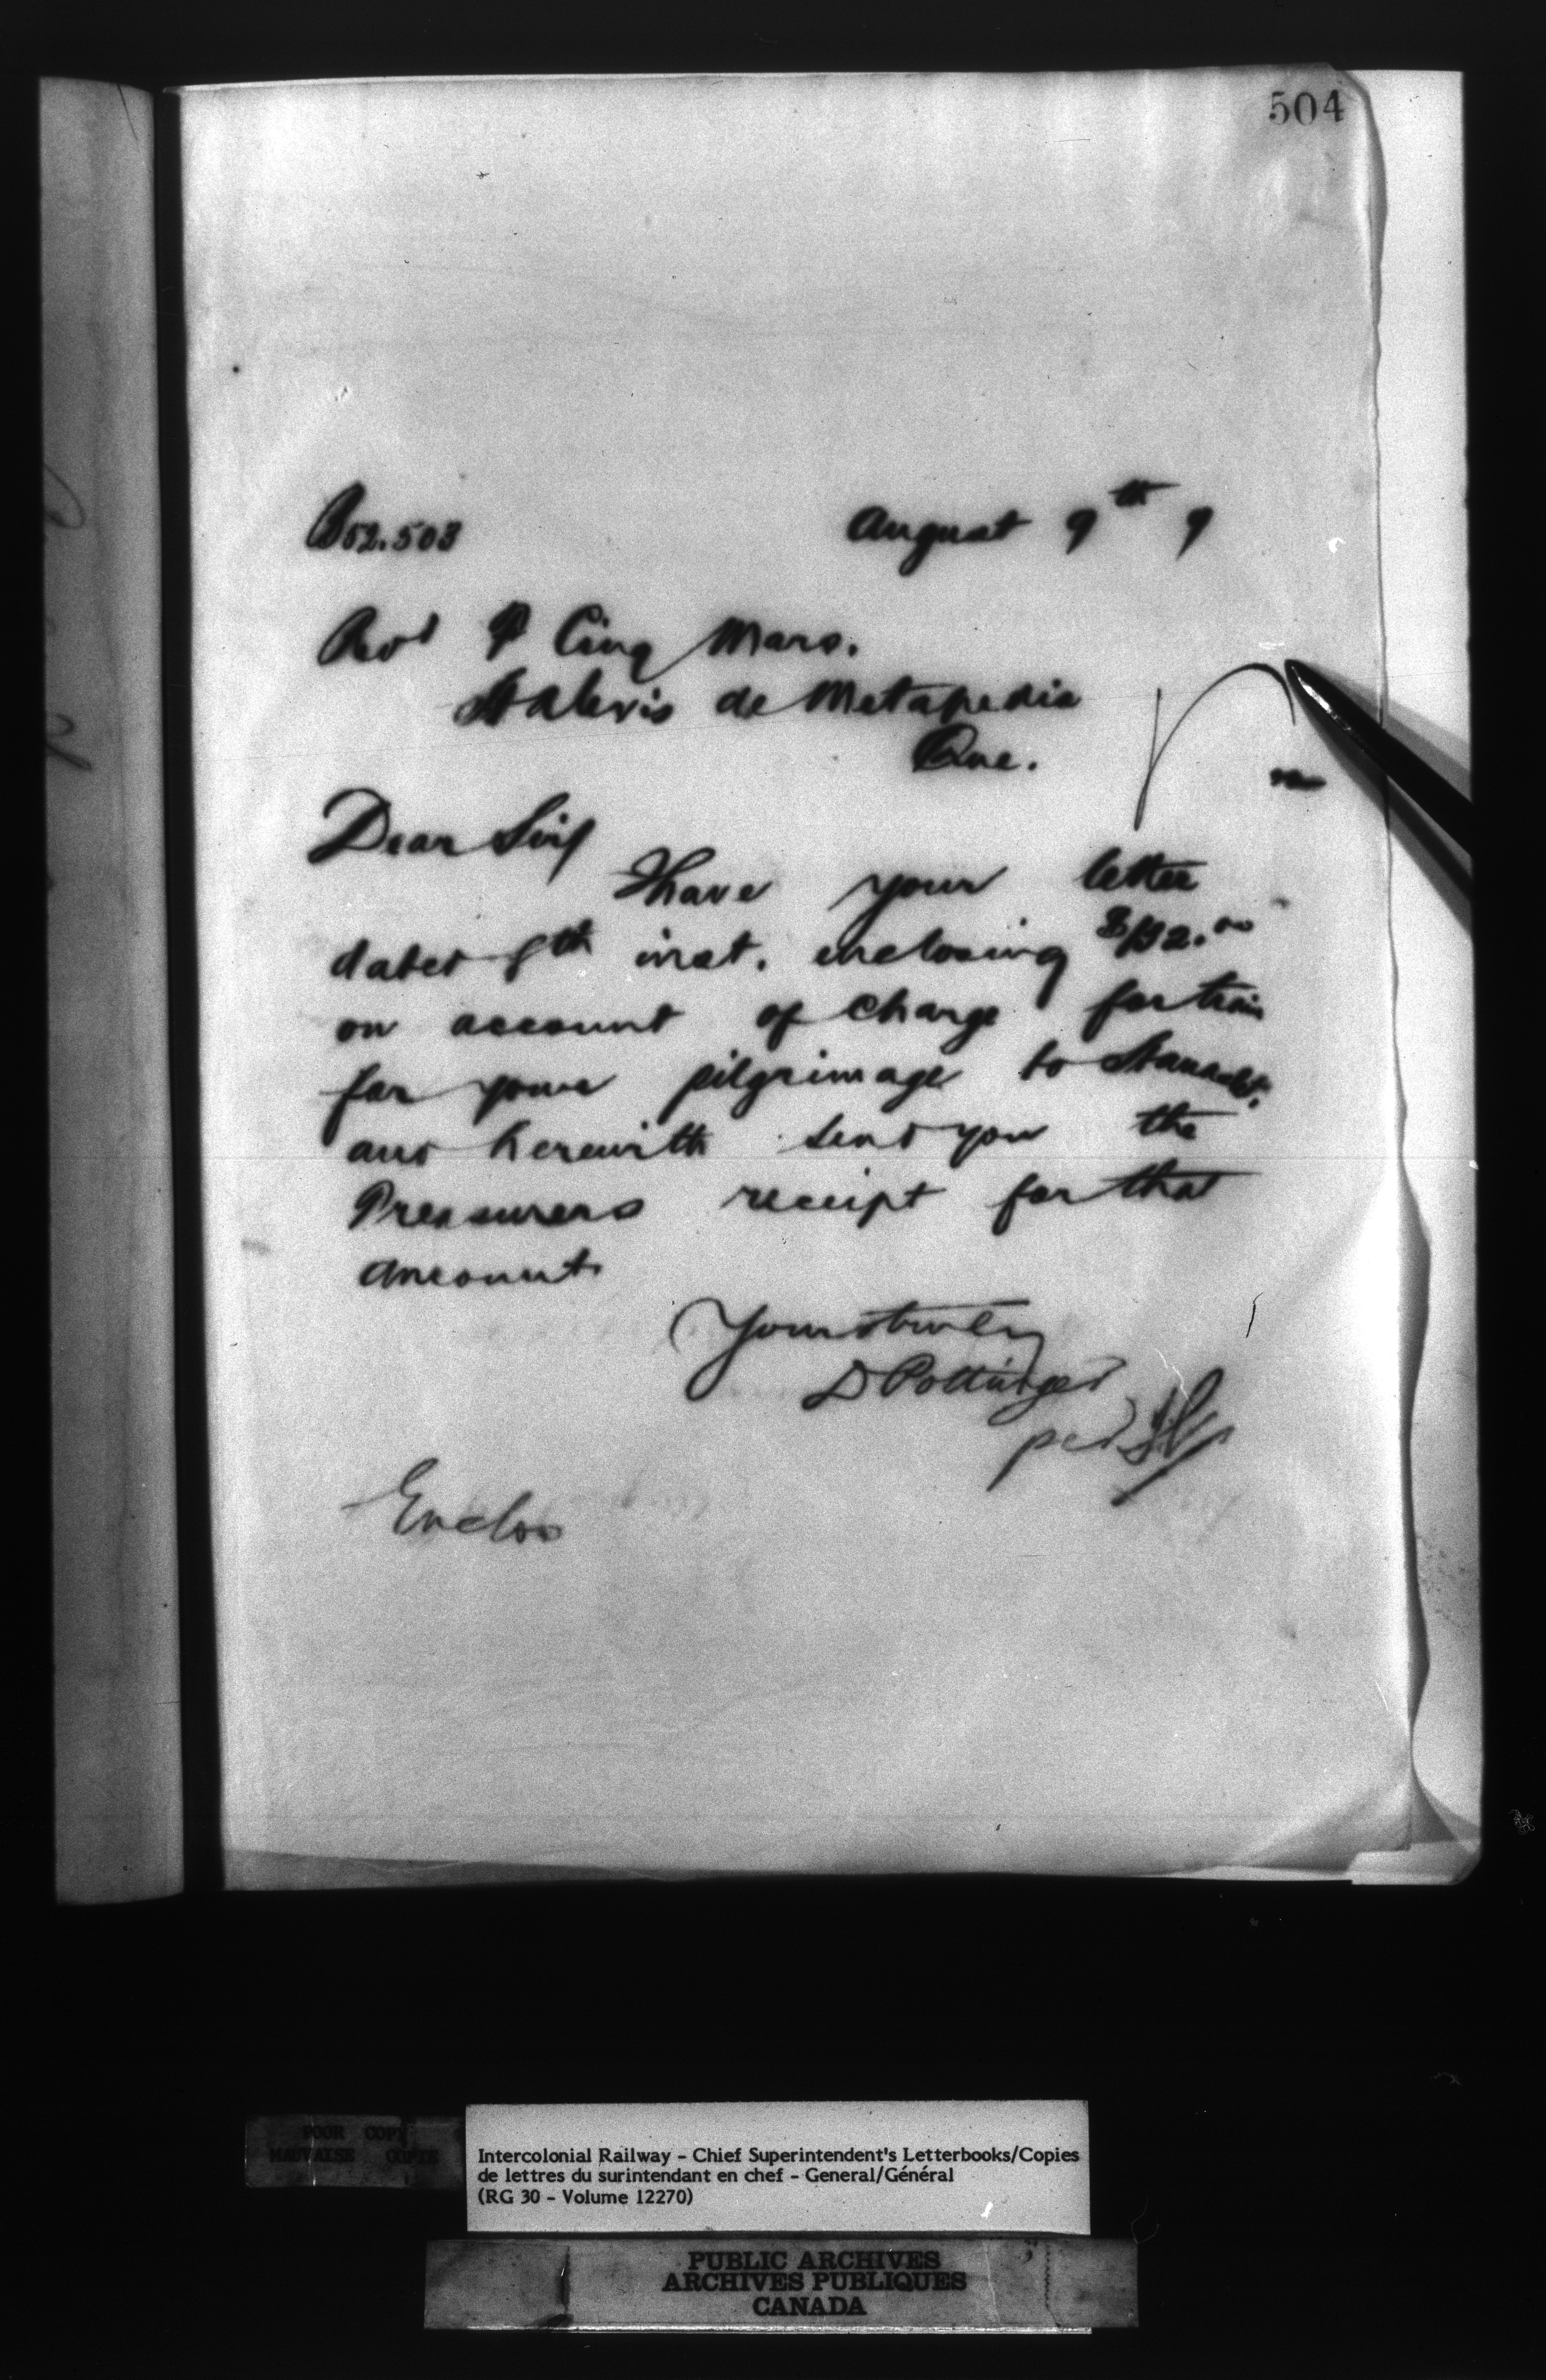 504
B52.503 August 9th 9
Revd P Cinq Mars.
St Alexis de Metapedia
Que.
Dear Sir/
I have your letter
dated 8th inst. enclosing $192.00
on account of charge for train
for your pilgrimage to
and herewith send you the
Treasurers receipt for that
amount.
Yours truly
D Pottinger
per
Enclos
POOR COPY
MAUVAISE COPIE
Intercolonial Railway - Chief Superintendent's Letterbooks/Copies
de lettres du surintendant en chef - General/Général
(RG 30 - Volume 12270)
PUBLIC ARCHIVES
ARCHIVES PUBLIQUES
CANADA